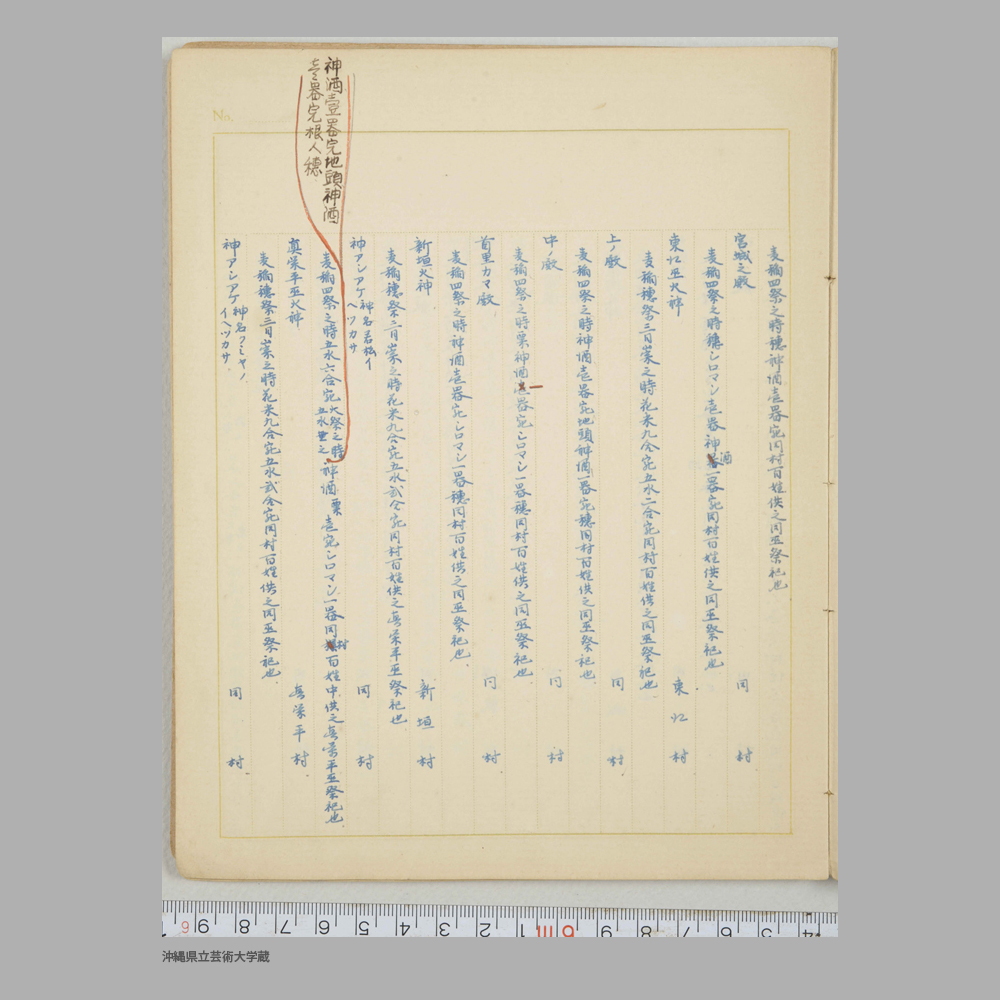 神酒壹器宛地頭神酒
壱器宛根人穂
麦稲四祭之時穂神酒壱器宛同村百姓供之同巫祭祀也
宮城之殿 同村
麦稲四祭之時穂シロマシ壱器神酒一器宛同村百姓供之同巫祭祀也
東江巫火神 東江村
麦稲穂祭三日崇之時花米九合宛五水二合宛同村百姓供之同巫祭祀也
上ノ殿 同村
麦稲四祭之時神酒壱器宛地頭神酒一器宛穂同村百姓供之同巫祭祀也
中ノ殿 同村
麦稲四祭之時粟神酒壱器宛シロマシ一器穂同村百姓供之同巫祭祀也
首里カマ殿 同村
麦稲四祭之時神酒壱器宛シロマシ一器穂同村百姓供之同巫祭祀也
新垣火神 新垣村
麦稲穂祭三日崇之時花米九合宛五水弐合宛同村百姓供之真栄平巫祭祀也
神アシアゲ 神名若松イヘツカサ 同村
麦稲四祭之時五水六合宛 大祭之時五水 之 神酒 粟 壱宛シロマシ一器同村百姓中供之真栄平巫祭祀也
真栄平巫火神 真栄平村
麦稲穂祭三日崇之時花米九合宛五水弐合宛同村百姓供之同巫祭祀也
神アシアゲ 神名フミヤノイヘツカサ 同村
No.
9 8 7 6 5 4 3 2 1 6m 9 8 7 6 5 4
沖縄県立芸術大学蔵